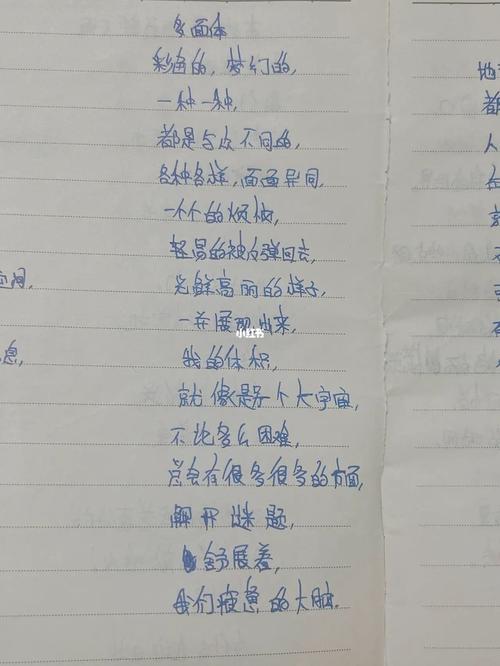 多面体
彩色的，梦幻的，
一种一种，
都是与众不同的，
各种各样，面面异同，
一个个的烦恼，
轻易的被反弹回去，
光鲜高丽的样子，
一并展现出来，
小红书
我的体积，
就像是另个大宇宙，
不论多么困难，
总会有很多很多的方面，
解开谜题，
舒展着，
我们疲惫的大脑。
息，
地
都
人